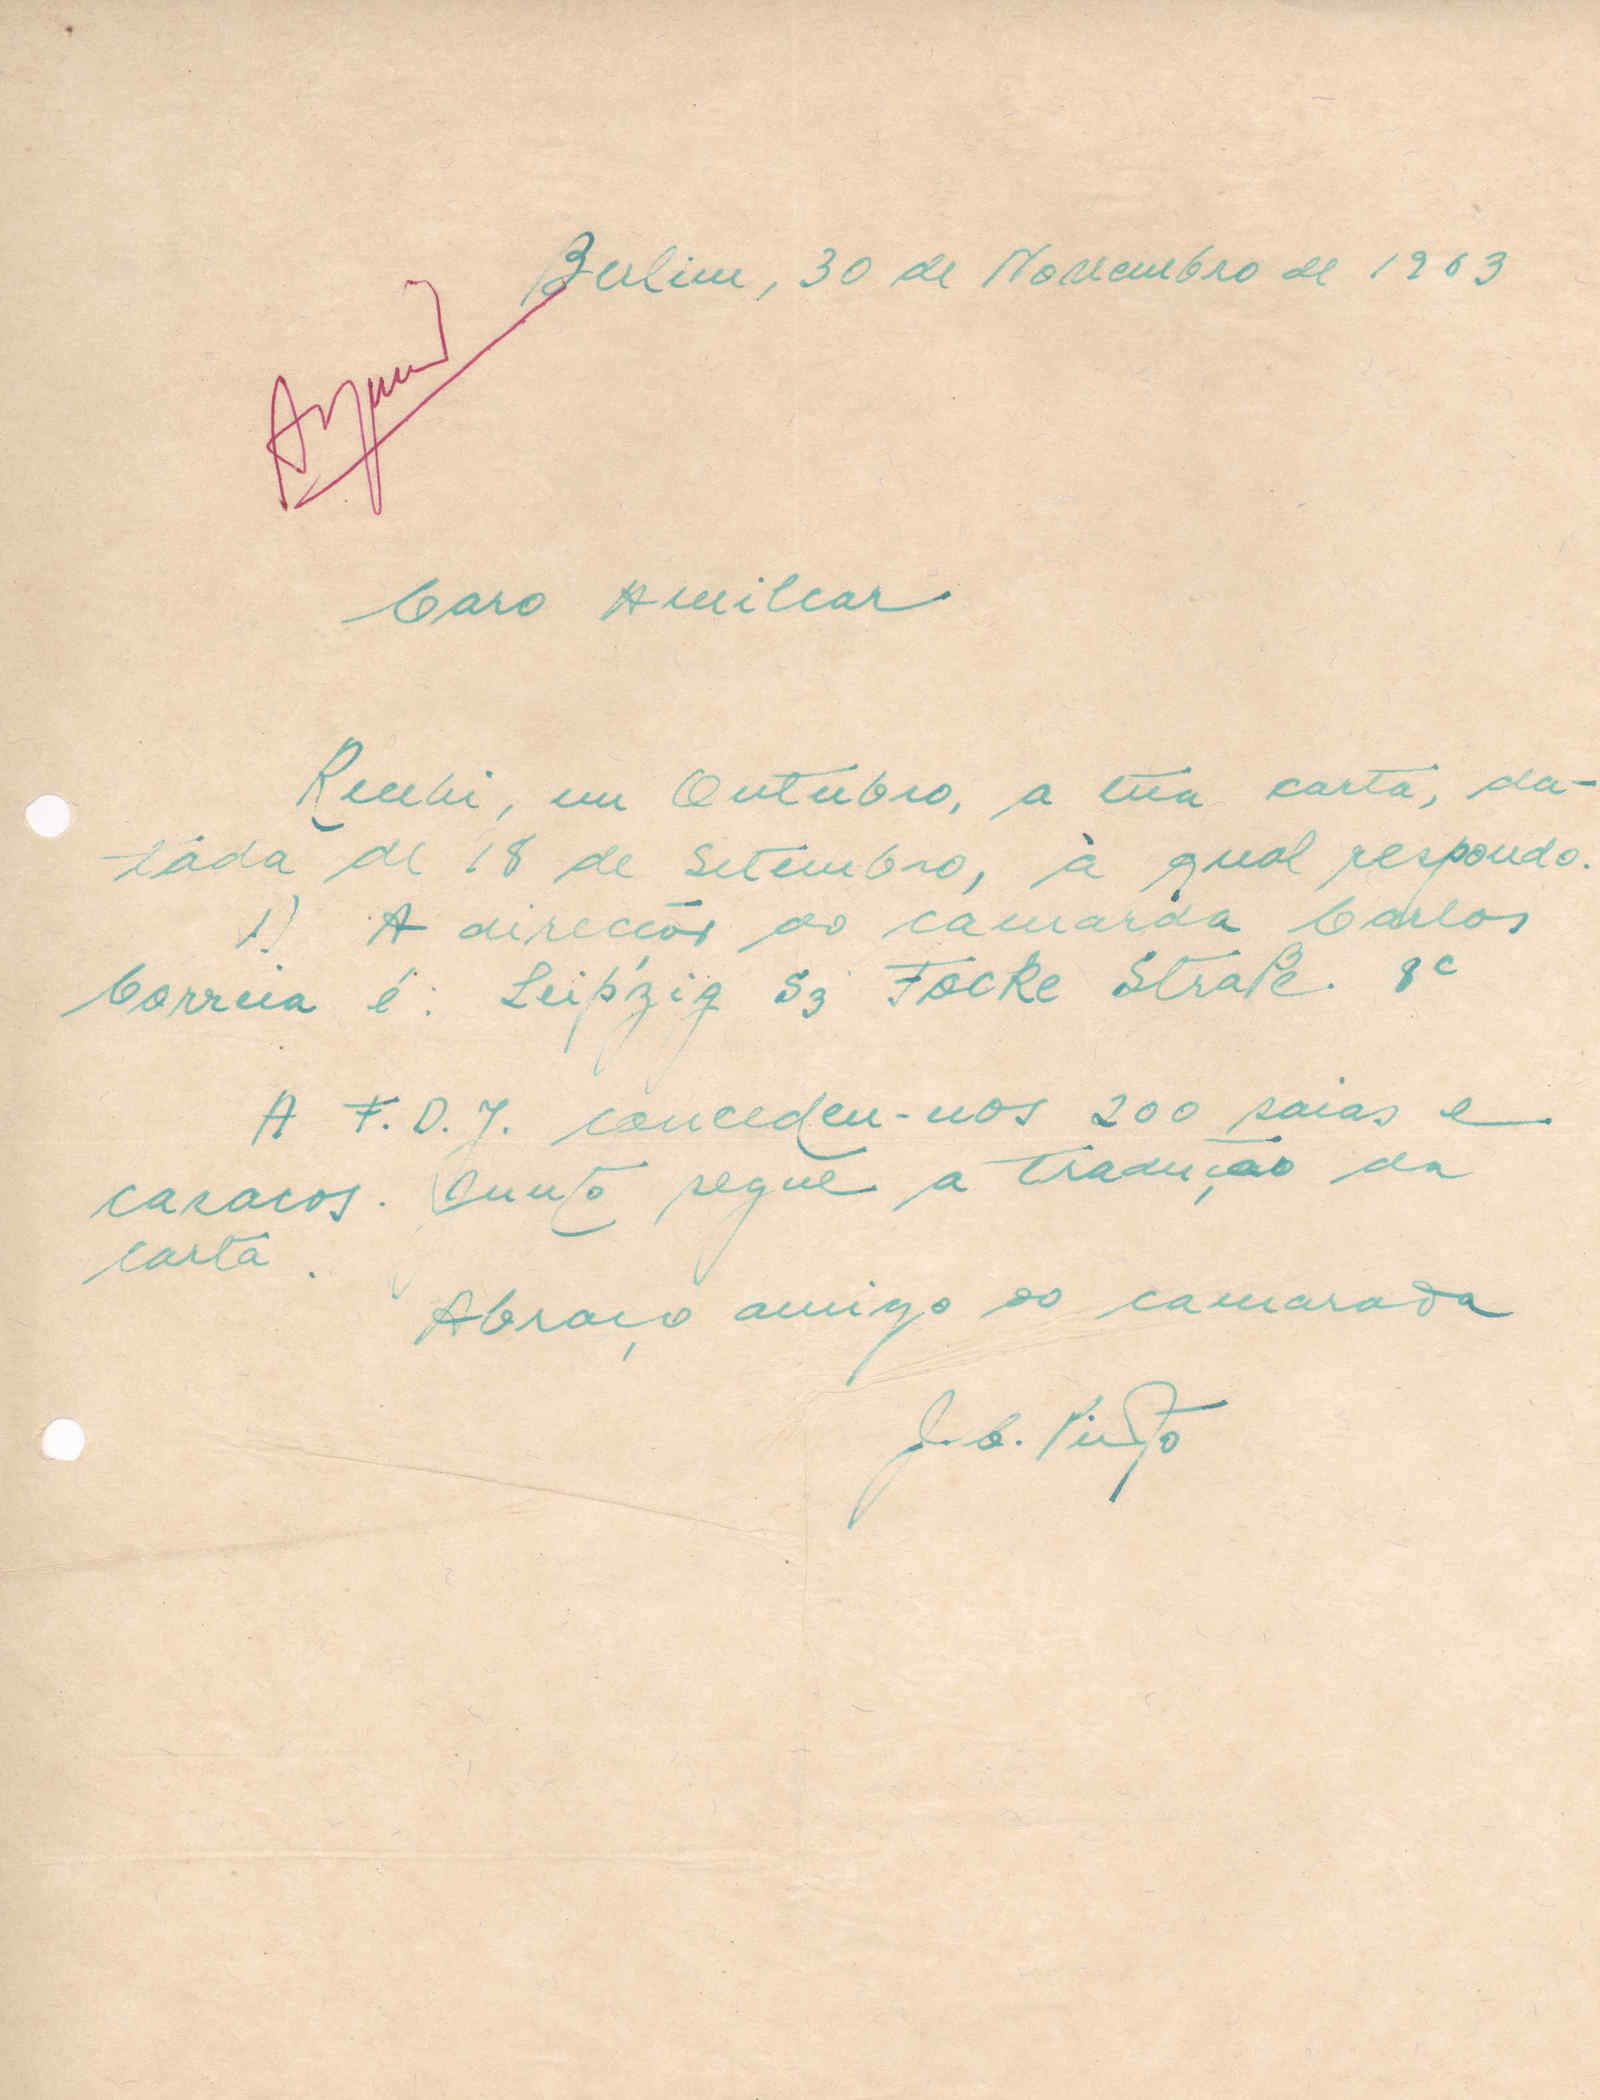 Berlim, 30 de Novembro de 1963
Caro Amilcar
Recebi, em Outubro, a tua carta, da-
tada de 18 de Setembro, à qual respondo.
1) A direcção do camarada Carlos
Correia é: Leipzig S3 Focke Straße. 8c
A F.D.J. concedeu-nos 200 saias e
casacos. Junto segue a tradução da
carta.
Abraço amigo do camarada
J. C. Pinto